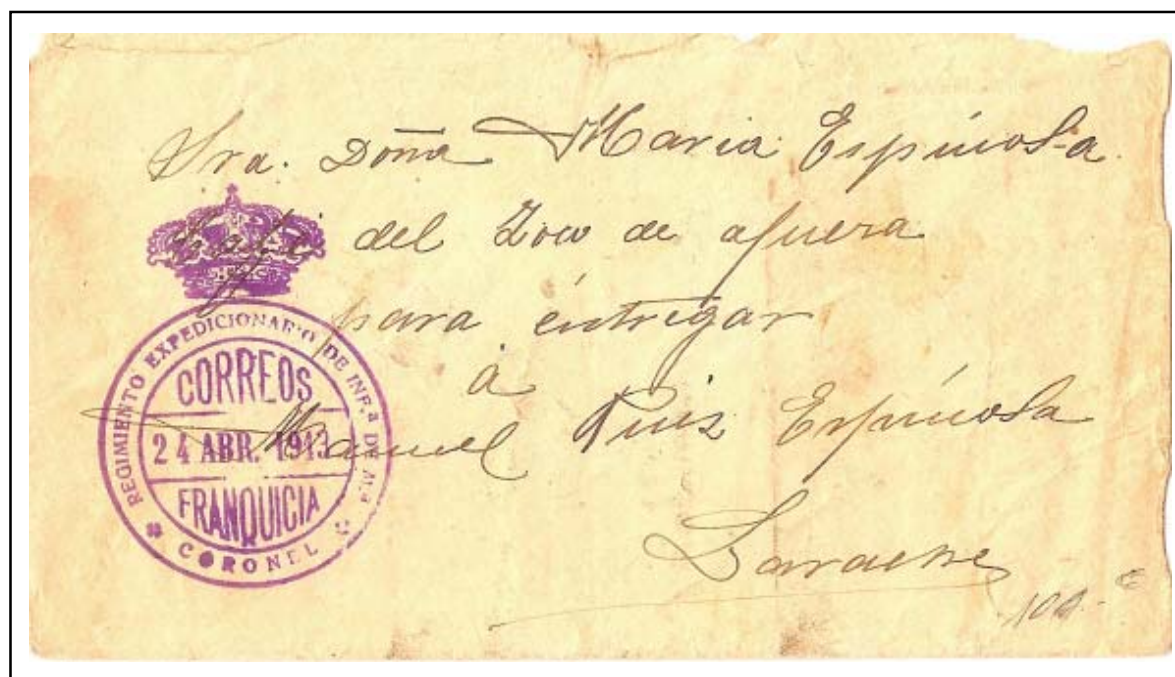 Sra. Doña Maria Espinosa.
Café del Zoco de afuera
para éntregar
á
Manuel Ruiz Espinosa
Larache
100.- €
REGIMIENTO EXPEDICIONARIO DE INF.ª DE M.ª
CORREOS
24 ABR. 1913
FRANQUICIA
* CORONEL *